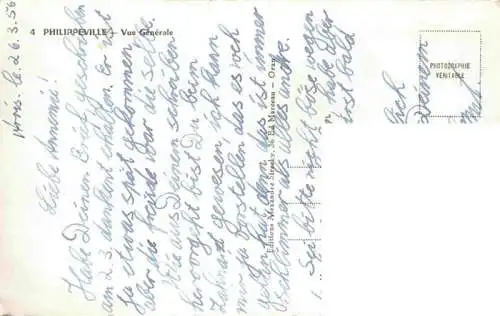 4 PHILIPPEVILLE — Vue Générale
PHOTOGRAPHIE
VÉRITABLE
Editions Alexandre Straehr, 36 Bd Marceau — Oran
le 26.3.56
Liebe Annemie!
Habe Deinen Brief geschrieben
am 23. dankend erhalten. Er ist
ja etwas spät gekommen
aber die Freude war die selbe.
Wie aus Deinem schreiben
hervorgeht bist Du beim
Zahnarzt gewesen, ich kann
mir ja vorstellen, das es weh
getan hat, denn das ist immer
schlimmer als alles andre.
Sei bitte nicht böse wegen
habe aber
erst bald
ich
Deinem